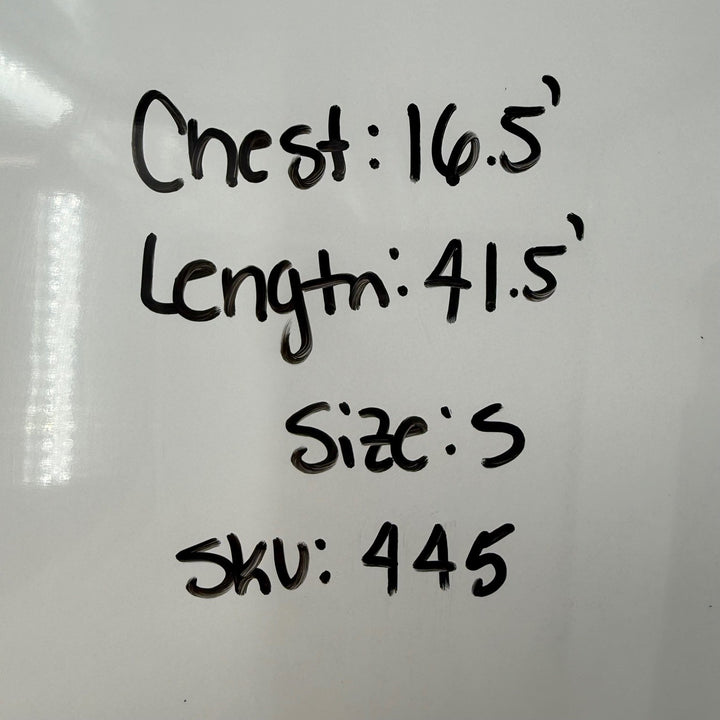 Chest: 16.5'
Length: 41.5'
Size: S
SKU: 445